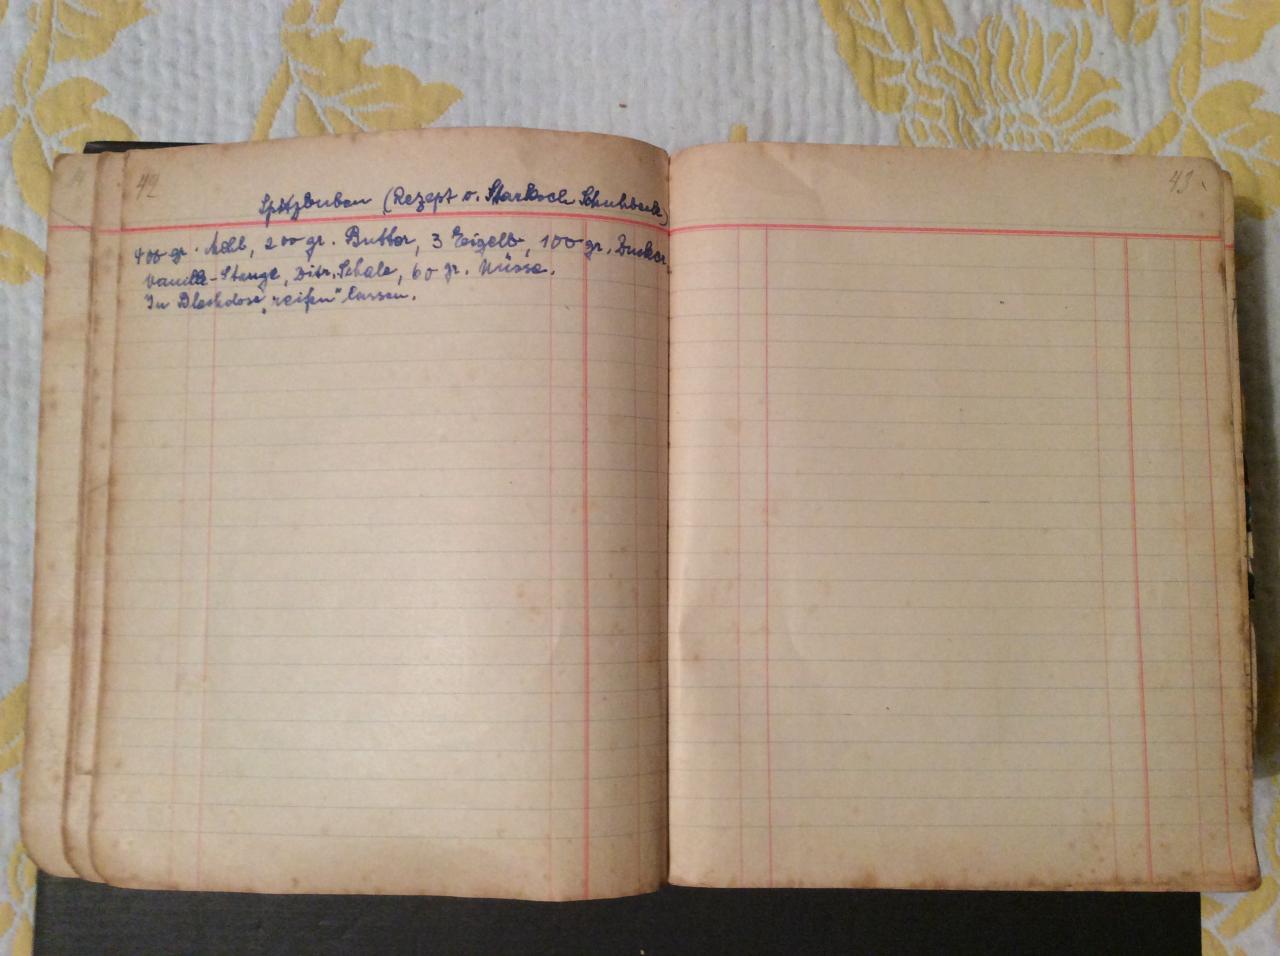 42
Spitzbuben (Rezept v. Starkoch Schuhbeck)
400 gr. Mehl, 200 gr. Butter, 3 Eigelb, 100 gr. Zucker
Vanille-Stange, Zitr. Schale, 60 gr. Nüsse.
In Blechdose „reifen“ lassen.
43.